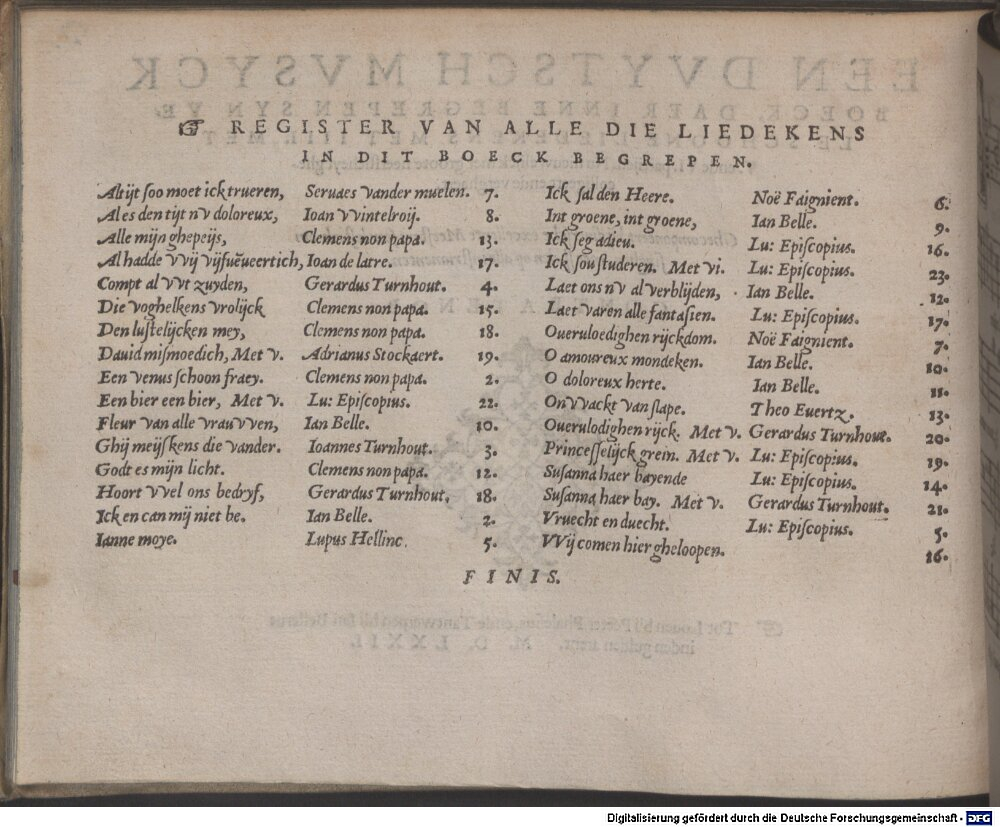 ☞ REGISTER VAN ALLE DIE LIEDEKENS
IN DIT BOECK BEGREPEN.
Altijt soo moet ick trueren, Seruaes vander muelen. 7.
Al es den tijt nv doloreux, Ioan VVintelroij. 8.
Alle mijn ghepeijs, Clemens non papa. 13.
Al hadde VVij vijfuẽueertich, Ioan de latre. 17.
Compt al vvt zuyden, Gerardus Turnhout. 4.
Die voghelkens vrolijck Clemens non papa. 15.
Den lustelijcken mey, Clemens non papa. 18.
Dauid mismoedich, Met v. Adrianus Stockaert. 19.
Een venus schoon fraey. Clemens non papa. 2.
Een bier een bier, Met v. Lu: Episcopius. 22.
Fleur van alle vrauvven, Ian Belle. 10.
Ghij meijskens die vander. Ioannes Turnhout. 3.
Godt es mijn licht. Clemens non papa. 12.
Hoort vvel ons bedryf, Gerardus Turnhout, 18.
Ick en can mij niet be. Ian Belle. 2.
Ianne moye. Lupus Hellinc. 5.
Ick sal den Heere. Noë Faignient. 6.
Int groene, int groene, Ian Belle. 9.
Ick seg adieu. Lu: Episcopius. 16.
Ick sou studeren. Met vi. Lu: Episcopius. 23.
Laet ons nv al verblijden, Ian Belle. 12.
Laet varen alle fantasien. Lu: Episcopius. 17.
Oueruloedighen rijckdom. Noë Faignient. 7.
O amoureux mondeken. Ian Belle. 10.
O doloreux herte. Ian Belle. 11.
On vvackt van slape. Theo Euertz. 13.
Ouerulodighen rijck. Met v. Gerardus Turnhout. 20.
Princesselijck grein. Met v. Lu: Episcopius. 19.
Susanna haer bayende Lu: Episcopius. 14.
Susanna haer bay. Met v. Gerardus Turnhout. 21.
Vruecht en duecht. Lu: Episcopius. 5.
VVij comen hier gheloopen. 16.
FINIS.
Digitalisierung gefördert durch die Deutsche Forschungsgemeinschaft - DFG